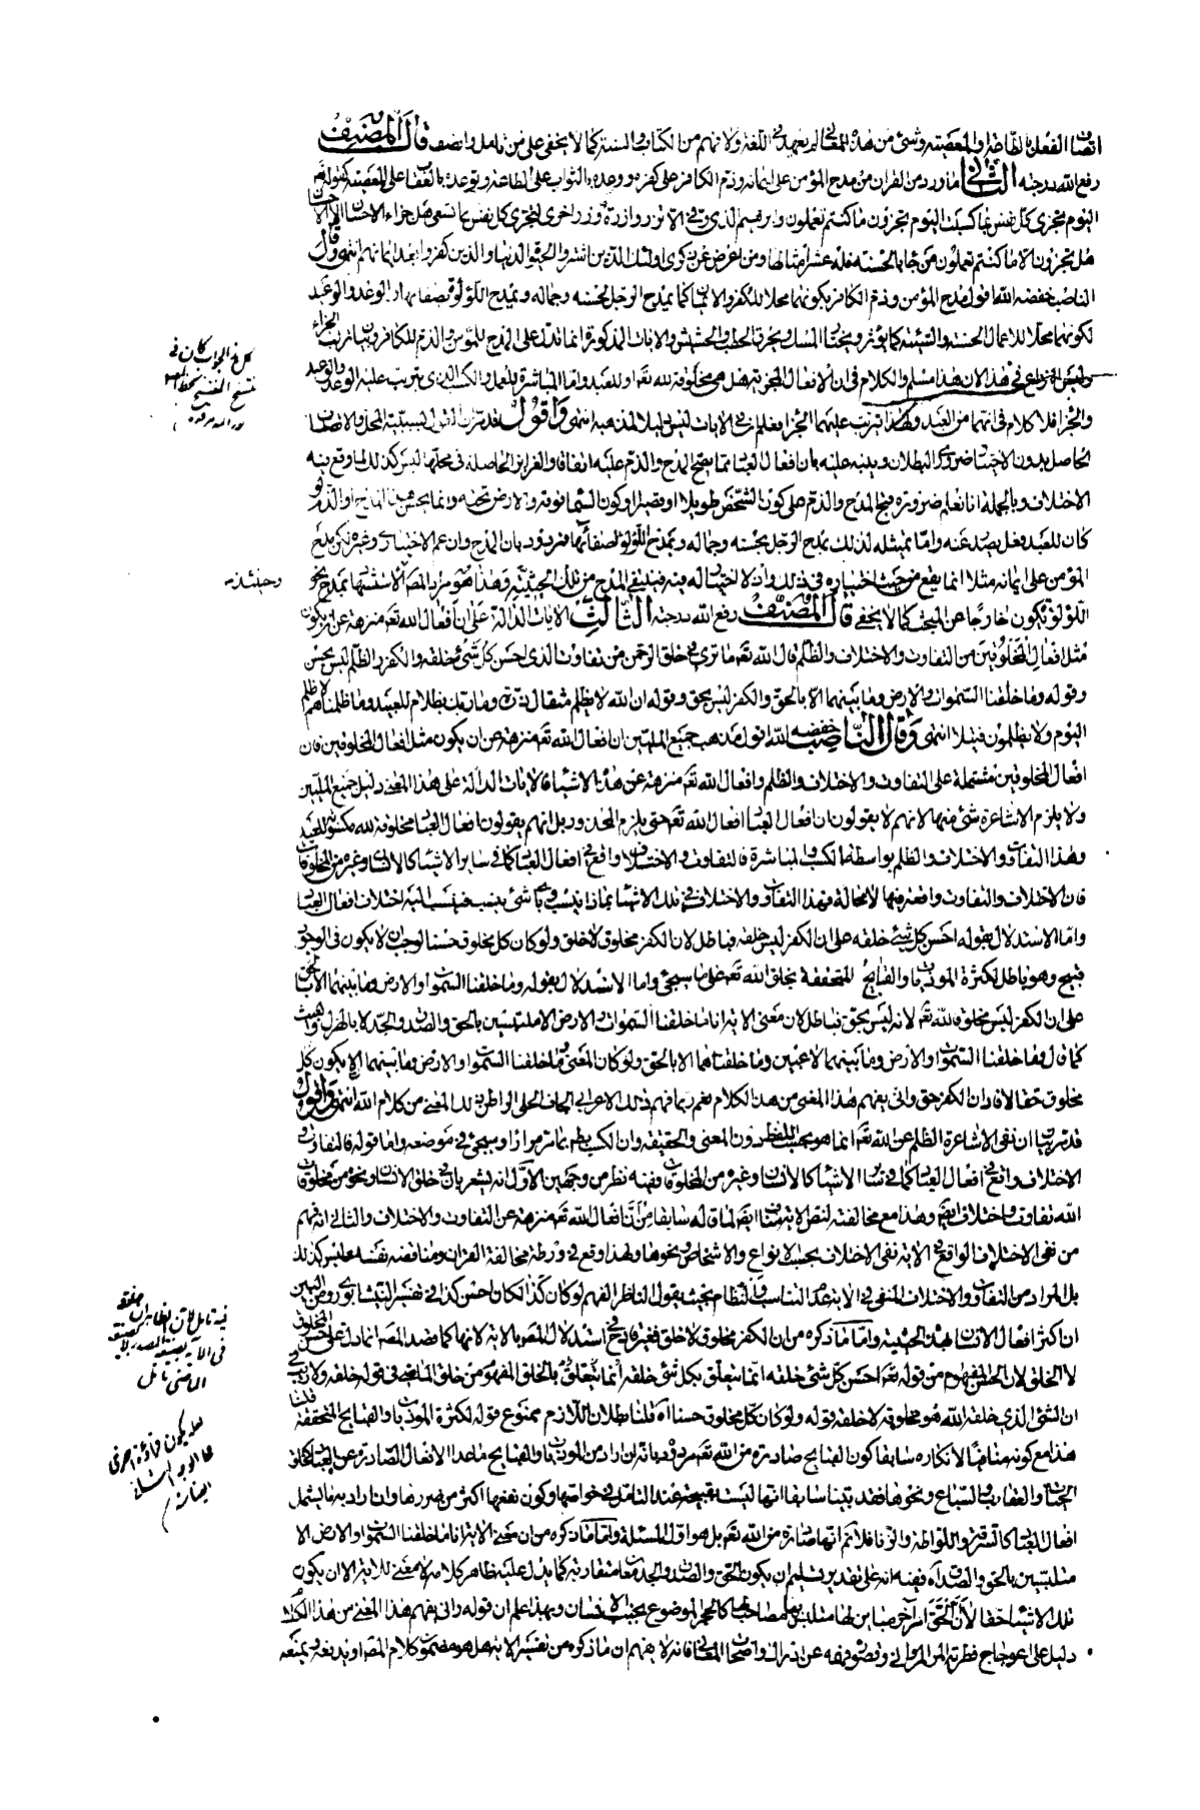 اتصاف الفعل بالطاعة والمعصية وشئ من هذه المعاني لم يعهد في اللغة ولا تفهم من الكتاب والسنة كما لا يخفى على من تامل وانصف قال المصنف
رفع الله درجته الثاني ما ورد من القران من مدح المؤمن على ايمانه وذم الكافر على كفره ووعده بالثواب على الطاعة وتوعده بالعقاب على المعصية كقوله تع
اليوم تجزى كل نفس بما كسبت اليوم تجزون ما كنتم تعملون وابرهيم الذي وفى الا تزر وازرة وزر اخرى لتجزى كل نفس بما تسعى هل جزاء الاحسان الا الاحسان
هل تجزون الا ما كنتم تعملون من جاء بالحسنة فله عشر امثالها ومن اعرض عن ذكرى اولئك الذين اشتروا الحيوة الدنيا والذين كفروا بعد ايمانهم انتهى وقال
الناصب خفضه الله اقول مدح المؤمن وذم الكافر بكونهما محلا للكفر والايمان كما يمدح الرجل بحسنه وجماله وتمدح اللؤلؤة بصفائها والوعد والوعيد
لكونهما محلا للاعمال الحسنة والسيئة كما يؤثر ويختار المسك ويحرق الحطب والحشيش والايات المذكورة انما تدل على المدح للمؤمن والذم للكافر وبيان ترتب الجزاء
وليس النزاع في هذا لان هذا مسلم والكلام في ان الافعال المجزية هل هي مخلوقة لله تع او للعبد واما المباشرة للعمل والكسب الذي يترتب عليه الوعد والوعيد
والجزاء فلا كلام في انهما من العبد ولهذا يترتب عليهما الجزاء فعلم ان الايات ليس دليلا لمذهبه انتهى واقول قد مر ان القول بسببية المحل والاتصاف
الحاصل بدون الاختيار ضروري البطلان وينبه عليه بان افعال العباد مما يصح المدح والذم عليه اتفاقا والغرائز الحاصلة في محلها ليس كذلك لما وقع فيه
الاختلاف وبالجملة انا نعلم ضرورة قبح المدح والذم على كون الشخص طويلا او قصيرا او كون السماء فوقه والارض تحته وانما يحسن هذا المدح او الذم لو
كان للعبد فعل يصدر عنه واما تمثيله لذلك بمدح الرجل بحسنه وجماله وتمدح اللؤلؤة بصفائها فمردود بان المدح وان عم الاختياري وغيره لكن مدح
المؤمن على ايمانه مثلا انما يقع من حيث اختياره في ذلك وان لا اختيار له فيه فينتفى المدح من تلك الحيثية وهذا هو مراد المص فالاستشهاد بمدح نحو
اللؤلؤة يكون خارجا عن المبحث كما لا يخفى قال المصنف رفع الله درجته الثالث الايات الدالة على ان افعال الله تع منزهة عن ان يكون
مثل افعال المخلوقين من التفاوت والاختلاف والظلم قال الله تع ما ترى في خلق الرحمن من تفاوت الذي احسن كل شئ خلقه والكفر والظلم ليس بحسن
وقوله وما خلقنا السموات والارض وما بينهما الا بالحق والكفر ليس بحق وقوله ان الله لا يظلم مثقال ذرة وما ربك بظلام للعبيد وما ظلمناهم لا ظلم
اليوم ولا يظلمون فتيلا انتهى وقال الناصب خفضه الله اقول مذهب جميع المليين ان افعال الله تع منزهة عن ان يكون مثل افعال المخلوقين فان
افعال المخلوقين مشتملة على التفاوت والاختلاف والظلم وافعال الله تع منزهة عن هذه الاشياء فالايات الدالة على هذا المعنى دليل جميع المليين
ولا يلزم الاشاعرة شئ منها لانهم لا يقولون ان افعال العباد افعال الله تع حتى يلزم المحذور بل انهم يقولون افعال العباد مخلوقة لله مكسوبة للعبد
وهذا التفاوت والاختلاف والظلم بواسطة الكسب والمباشرة فالتفاوت والاختلاف واقع في افعال العباد كما في سائر الاشياء كالانسان وغيره من المخلوقات
فان الاختلاف والتفاوت واقعة فيها لا محالة فهذا التفاوت والاختلاف في تلك الاشياء بماذا ينسب وباى شئ ينسب فينسب اليه اختلاف افعال العباد
واما الاستدلال بقوله احسن كل شئ خلقه على ان الكفر ليس خلقه فباطل لان الكفر مخلوق لا خلق ولو كان كل مخلوق حسنا لوجب ان لا يكون في الوجود
قبيح وهو باطل لكثرة الموذيات والقبايح المتحققة بخلق الله تع على ما سيجئ واما الاستدلال بقوله وما خلقنا السموات والارض وما بينهما الا بالحق
على ان الكفر ليس مخلوقا لله تع لانه ليس بحق فباطل لان معنى الاية انا ما خلقنا السموات والارض الا ملتبسين بالحق والصدق والجد لا بالهزل والعبث
كما قال وما خلقنا السموات والارض وما بينهما لاعبين وما خلقناهما الا بالحق ولو كان المعنى وما خلقنا السموات والارض وما بينهما الا يكون كل
مخلوق حقا لافاد ان الكفر حق وانى يفهم هذا المعنى من هذا الكلام نعم ربما فهم ذلك الاعرابي الجاف الحلي الواطي ذلك المعنى من كلام الله انتهى واقول
قد مر بيان ان نفى الاشاعرة الظلم عن الله تع انما هو بحسب اللفظ دون المعنى والحقيقة وان الكسب باطل بما مر مرارا وسيجئ في موضعه واما قوله فالتفاوت و
الاختلاف واقع في افعال العباد كما في سائر الاشياء كالانسان وغيره من المخلوقات ففيه نظر من وجهين الاول انه يشعر بان في خلق الانسان ونحوه من مخلوقات
الله تفاوت واختلاف ايضا وهذا مع مخالفته لنص الاية ينافى ايضا لما قاله سابقا من ان افعال الله تع منزهة عن التفاوت والاختلاف والثاني انه فهم
من نفى الاختلاف الواقع في الاية نفى الاختلاف بحسب الانواع والاشخاص ونحوها ولهذا وقع في ورطة مخالفة القران ومناقضة نفسه وليس كذلك
بل المراد من التفاوت والاختلاف المنفى في الاية عدم التناسب والنظام بحيث يقول الناظر الفهم لو كان كذا لكان احسن كذا في تفسير النيشابوري ومن البين
ان اكثر افعال الانسان بهذه الحيثية واما ما ذكره من ان الكفر مخلوق لا خلق فغير قادح في استدلال المص بالاية لانها كما قصده المص انما تدل على حسن المخلوق
لا الخلق لان الحسن المفهوم من قوله تع احسن كل شئ خلقه انما يتعلق بكل شئ خلقه انما يتعلق بالخلق المفهوم من خلق الماضي في قوله خلقه ولا ريب في
ان الشئ الذي خلقه الله هو مخلوقه لا خلقه قوله ولو كان كل مخلوق حسنا اه قلنا بطلان اللازم ممنوع قوله لكثرة الموذيات والقبايح المتحققة قلنا
هذا مع كونه مناقضا لانكاره سابقا كون القبايح صادرة من الله تع مردود بانه ان اراد من الموذيات والقبايح ما عدا الافعال الصادرة عن العباد كخلق
الحيات والعقارب والسباع ونحوها فقد بينا سابقا انها ليست بقبيحة عند التامل في خواصها وكون نفعها اكثر من ضررها وان اراد به ما يشمل
افعال العباد كالسرقة واللواطة والزنا فلا نم انها صادرة من الله تع بل هو اول المسئلة واما ما ذكره من ان معنى الاية انا ما خلقنا السموات والارض الا
متلبسين بالحق والصدق اه ففيه انه على تقدير تسليم ان يكون الحق والصدق والجد معا متقاربة كما يدل عليه ظاهر كلامه لا معنى للاية الا ان يكون
تلك الاشياء حقا لا ان الحق امر اخر مباين لها متلبس بها مصاحب لها كالحجر الموضوع بجنب الانسان وبهذا علم ان قوله وانى يفهم هذا المعنى من هذا الكلام
دليل على اعوجاج فطرته وقصور فهمه عن ادراك واضحات المعاني فانه لا يفهم ان ما ذكره من تفسير الاية هل هو مضمون كلام المص او يدفعه ويمنعه
وحينئذ